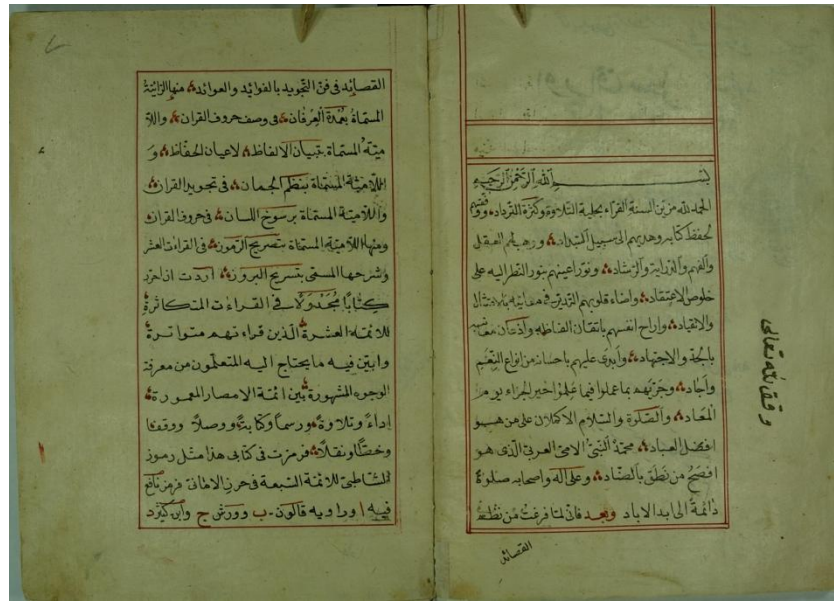 بسم الله الرحمن الرحيم
الحمد لله مزين السنة القراء بحلية التلاوة وكثرة الترداد، ووفقهم
لحفظ كتابه وهديهم الى سبيل السداد، ورهم العقل
والفهم والدراية والرشاد، ونور اعينهم بنور النظر اليه على
خلوص الاعتقاد، واضاء قلوبهم التدبر في معانيه بالامتثال
والانقياد، واراح انفسهم باتقان الفاظه واذعان
بالجد والاجتهاد، وابدى عليهم باحسانه من انواع التنعيم
واجاد، وجزيهم بما عملوا فيما علموا خير الجزاء يوم
المعاد، والصلوة والسلام الاكملان على من هو
افضل العباد، محمد النبي الامي العربي الذي هو
افصح من نطق بالضاد، وعلى آله واصحابه صلوة
دائمة الى ابد الاباد وبعد فاني لما فرغت من نظم
القصائد
وقف لله تعالى
القصائد في فن التجويد بالفوائد والعوائد، منها الرائية
المسماة بعمدة العرفان، في وصف حروف القران، واللا
مية المسماة بتبيان الالفاظ، لاعيان الحفاظ، و
اللامية المسماة بنظم الجمان، في تجويد القران،
واللامية المسماة برسوخ اللسان، في حروف القران
ومنها اللامية المسماة بتصريح الرموز، في القراءات العشر
وشرحها المسمى بتسريح البروز، اردت ان احرر
كتابا مجدولا في القراءات المتكاثرة
للائمة العشرة الذين قراءتهم متواترة
وابين فيه ما يحتاج اليه المتعلمون من معرفة
الوجوه المشهورة بين ائمة الامصار المعمورة
اداء وتلاوة ورسما وكتابة ووصلا ووقفا
وخطا ونقلا، فرمزت في كتابي هذا مثل رموز
الشاطبي للائمة السبعة في حرز الاماني فرمز نافع
فيه ا وراويه قالون ب وورش ج وابن كثير د